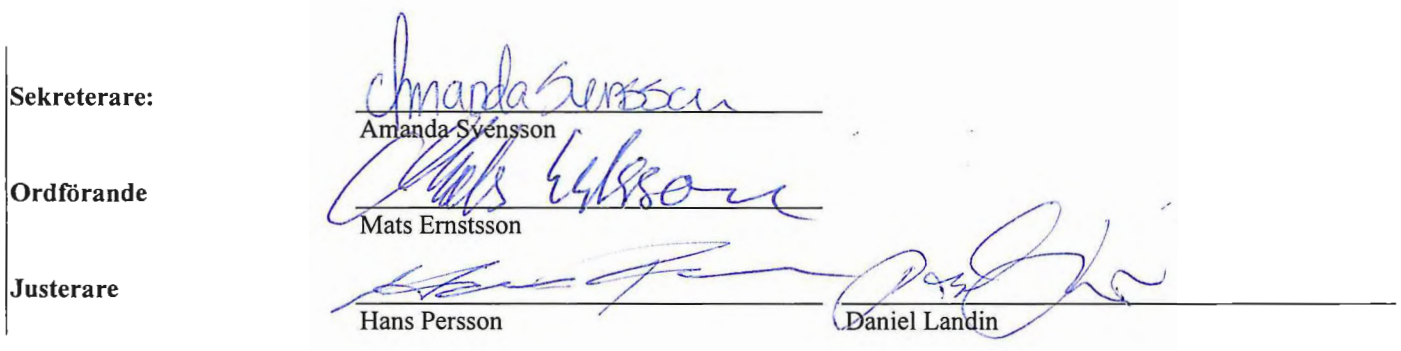 Sekreterare:
Amanda Svensson
Amanda Svensson
Ordförande
Mats Ernstsson
Mats Ernstsson
Justerare
Hans Persson
Hans Persson Daniel Landin